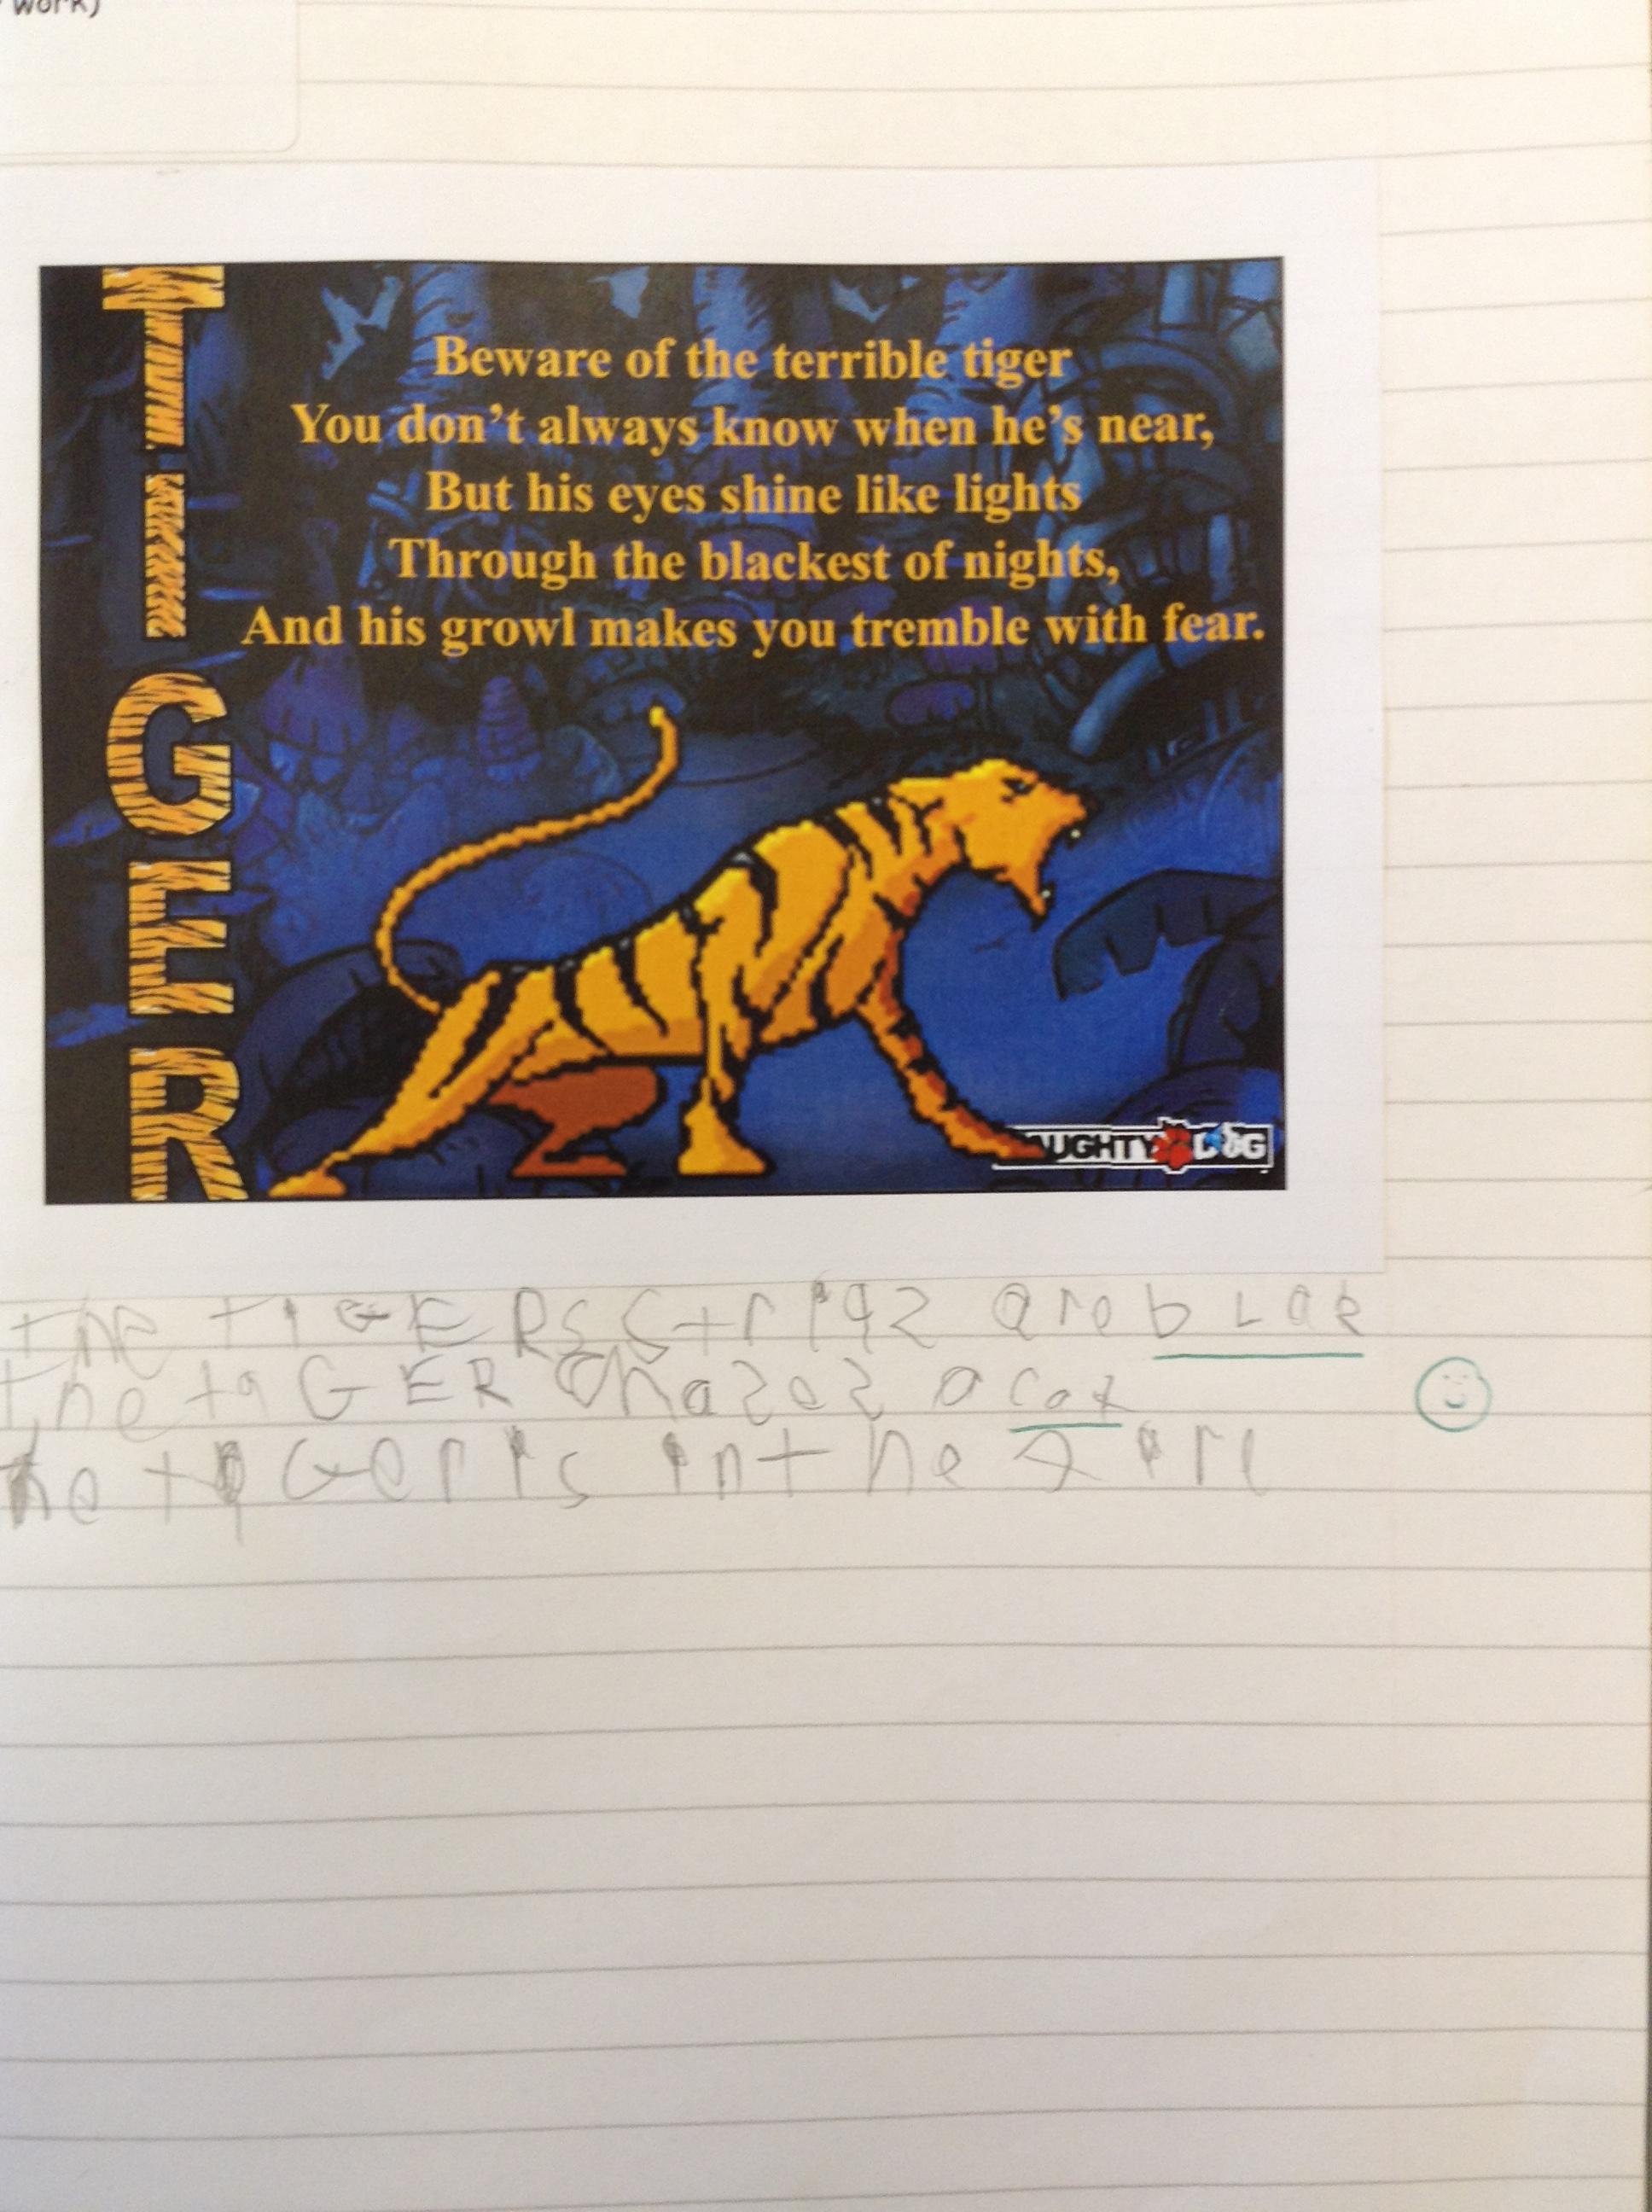 work)
TIGER
Beware of the terrible tiger
You don't always know when he's near,
But his eyes shine like lights
Through the blackest of nights,
And his growl makes you tremble with fear.
AUGHTY DOG
the tiGERS Stripz are blak
the taGER Chazez a cat
he tiGer is in the